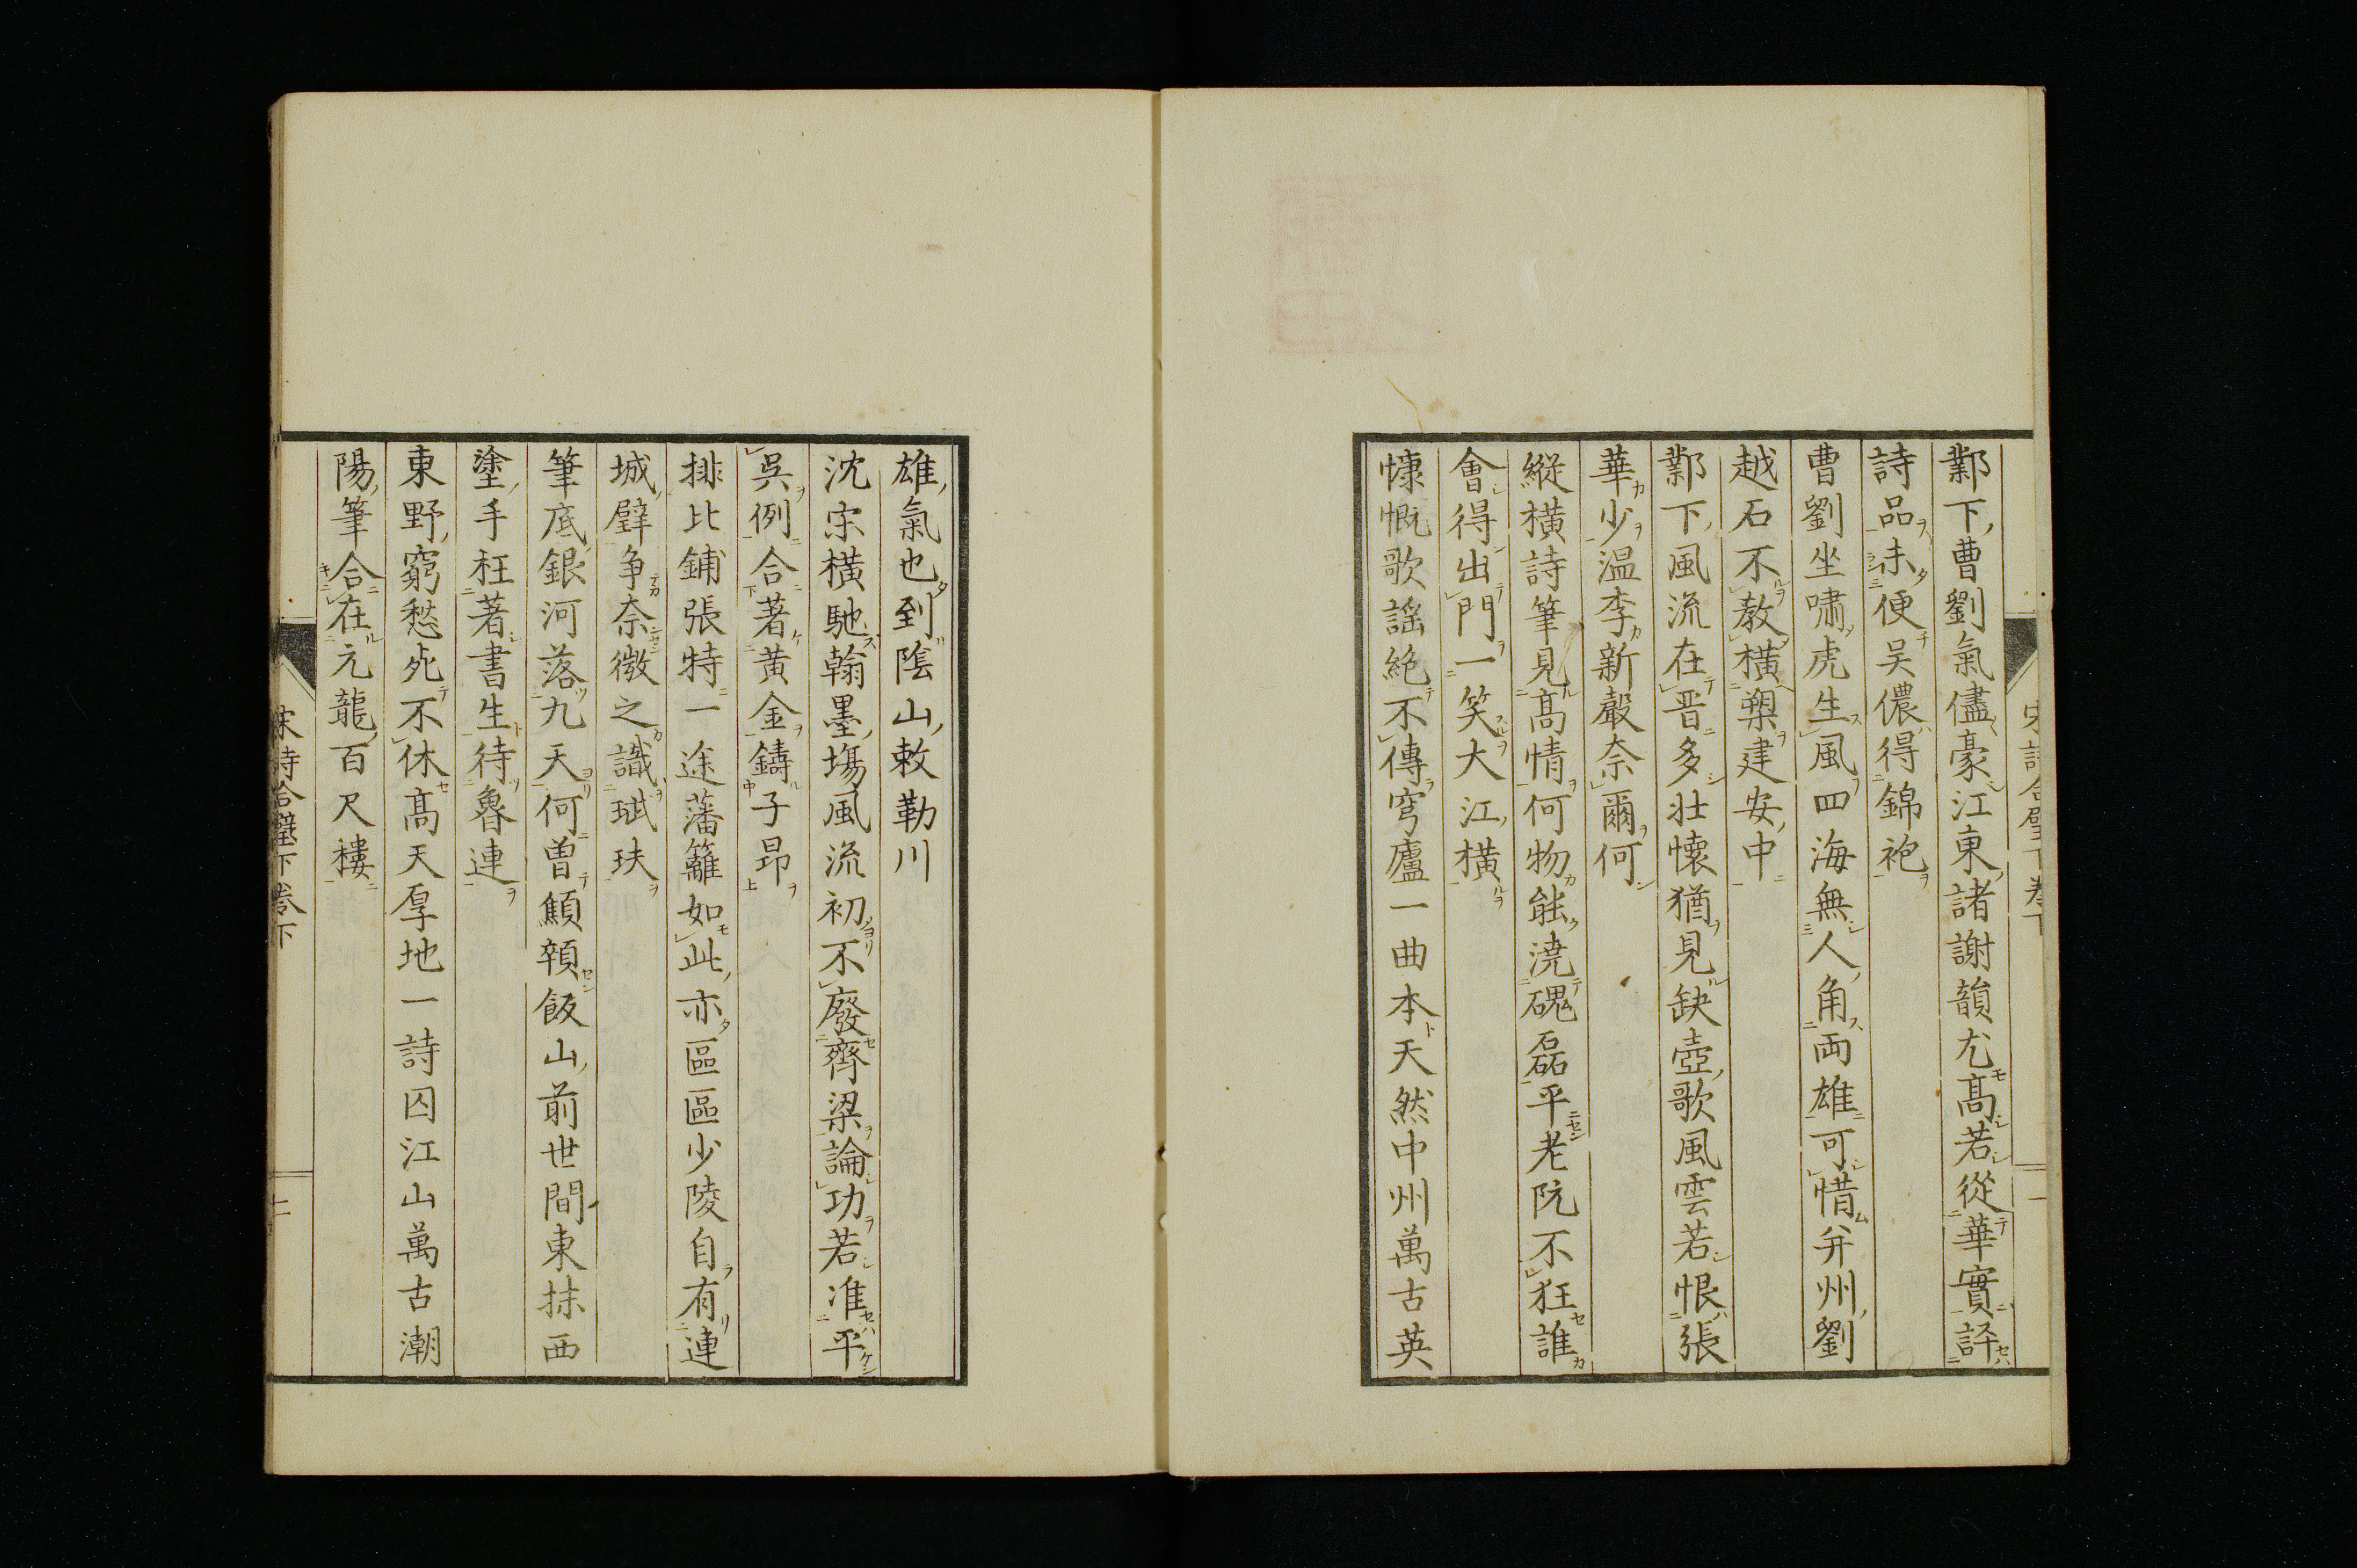 鄴下曹劉氣儘豪江東諸謝韻尤高若從華實評
詩品未便吳儂得錦袍
曹劉坐嘯虎生風四海無人角兩雄可惜并州劉
越石不教橫槊建安中
鄴下風流在晉多壯懷猶見缺壺歌風雲若恨張
華少溫李新聲奈爾何
縱橫詩筆見高情何物能澆磈磊平老阮不狂誰
會得出門一笑大江橫
慷慨歌謠絕不傳穹廬一曲本天然中州萬古英
雄氣也到陰山敕勒川
沈宋橫馳翰墨場風流初不廢齊梁論功若准平
吳例合著黃金鑄子昂
排比鋪張特一途藩籬如此亦區區少陵自有連
城璧争奈微之識珷玞
筆底銀河落九天何曾顦顇飯山前世間東抹西
塗手枉著書生待魯連
東野窮愁死不休高天厚地一詩囚江山萬古潮
陽筆合在元龍百尺樓
宋詩合璧下卷下